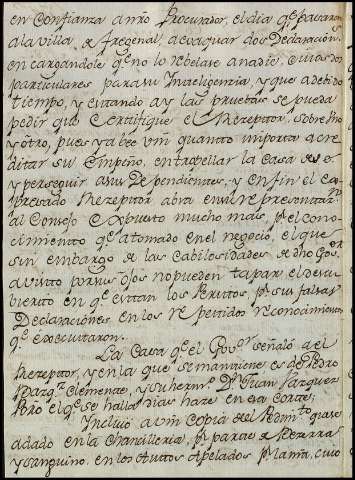 en Confianza a mio Procurador, el dia qe. pasaron
a la villa de Fregenal, a evaquar dos Declaracion.
en cargandole qe. no lo rebelase a nadie,
particulares para su Inteligencia, y que a debido
tiempo, y evitando ay las pruebas se pueda
pedir que Certifique el Rezeptor, sobre Vno
y otro, pues ya bee Vm quanto importa acre
ditar su Empeño, en tropellar la Casa de
y perseguir a sus Dependientes, y en fin el ex
presado Rezeptor abra en su representazn.
al Consejo Expuesto mucho mas, pr. el cono
cimiento qe. a tomado en el negocio, el que
sin embargo de las Cabilosidades de dho Gover.
a visto por sus ojos no pueden tapar el descu
bierto en qe. estan los Peritos, pr. sus falsas
Declaraciones en los repetidos reconocimientos
qe. executaron.
La Casa qe. el Govr. señaló a el
Rezeptor, y en la que se mantiene es de Pedro
Vazqz. Clemente, y su hermo. Dn. Juan Vazquez
Pero el qe. se halla dias haze en esa Corte;
Incluio a Vm Copia del Pedimto. qe. ase
a dado en la Chancilleria, pr. parte de Bezerra
y Sanguino, en los Auttos Apelados pr. la mia, cuio